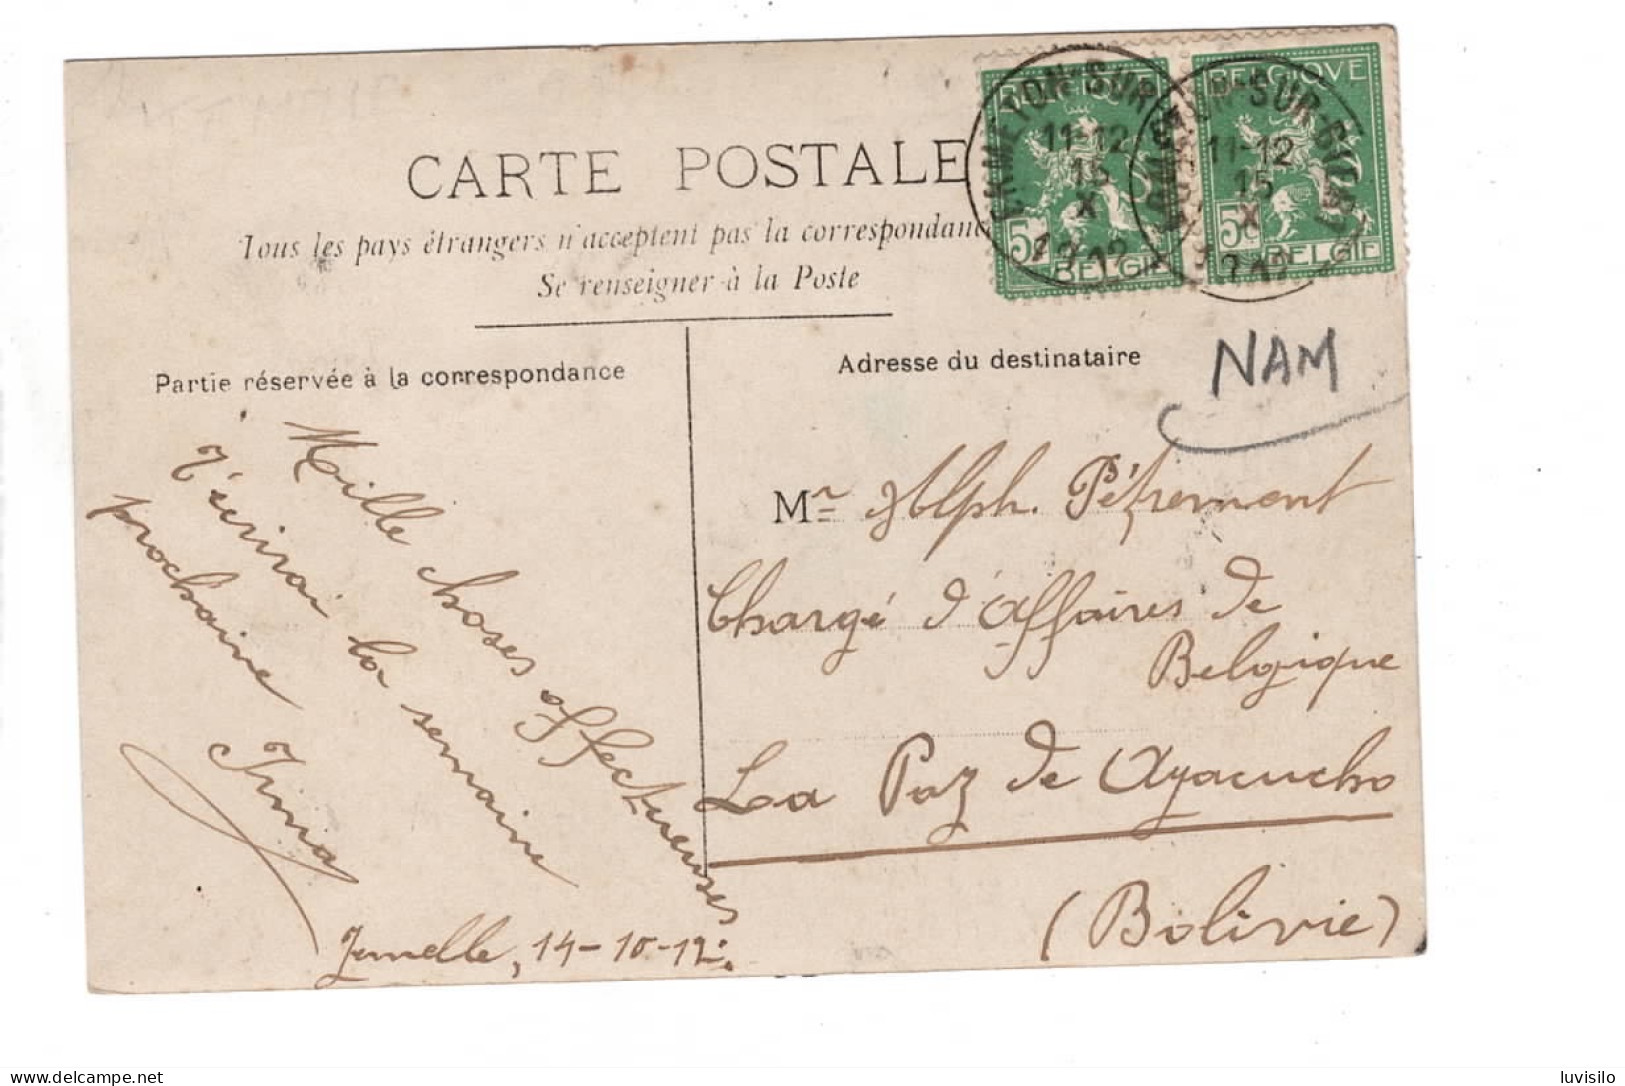 CARTE POSTALE
Tous les pays étrangers n'acceptent pas la correspondanc
Se renseigner à la Poste
BELGIQVE
5c
BELGIË
BELGIQVE
5c
BELGIË
ERMETON-SUR-BIERT
11-12
15
X
1912
ERMETON-SUR-BIERT
11-12
15
X
1912
NAM
Partie réservée à la correspondance
Mille choses affectueuses
J'écrirai la semaine
prochaine
Irma
Jemelle, 14-10-12.
Adresse du destinataire
Mr Alph. Pétrement
Chargé d'Affaires de
Belgique
La Paz de Ayacucho
(Bolivie)
delcampe.net
luvisilo